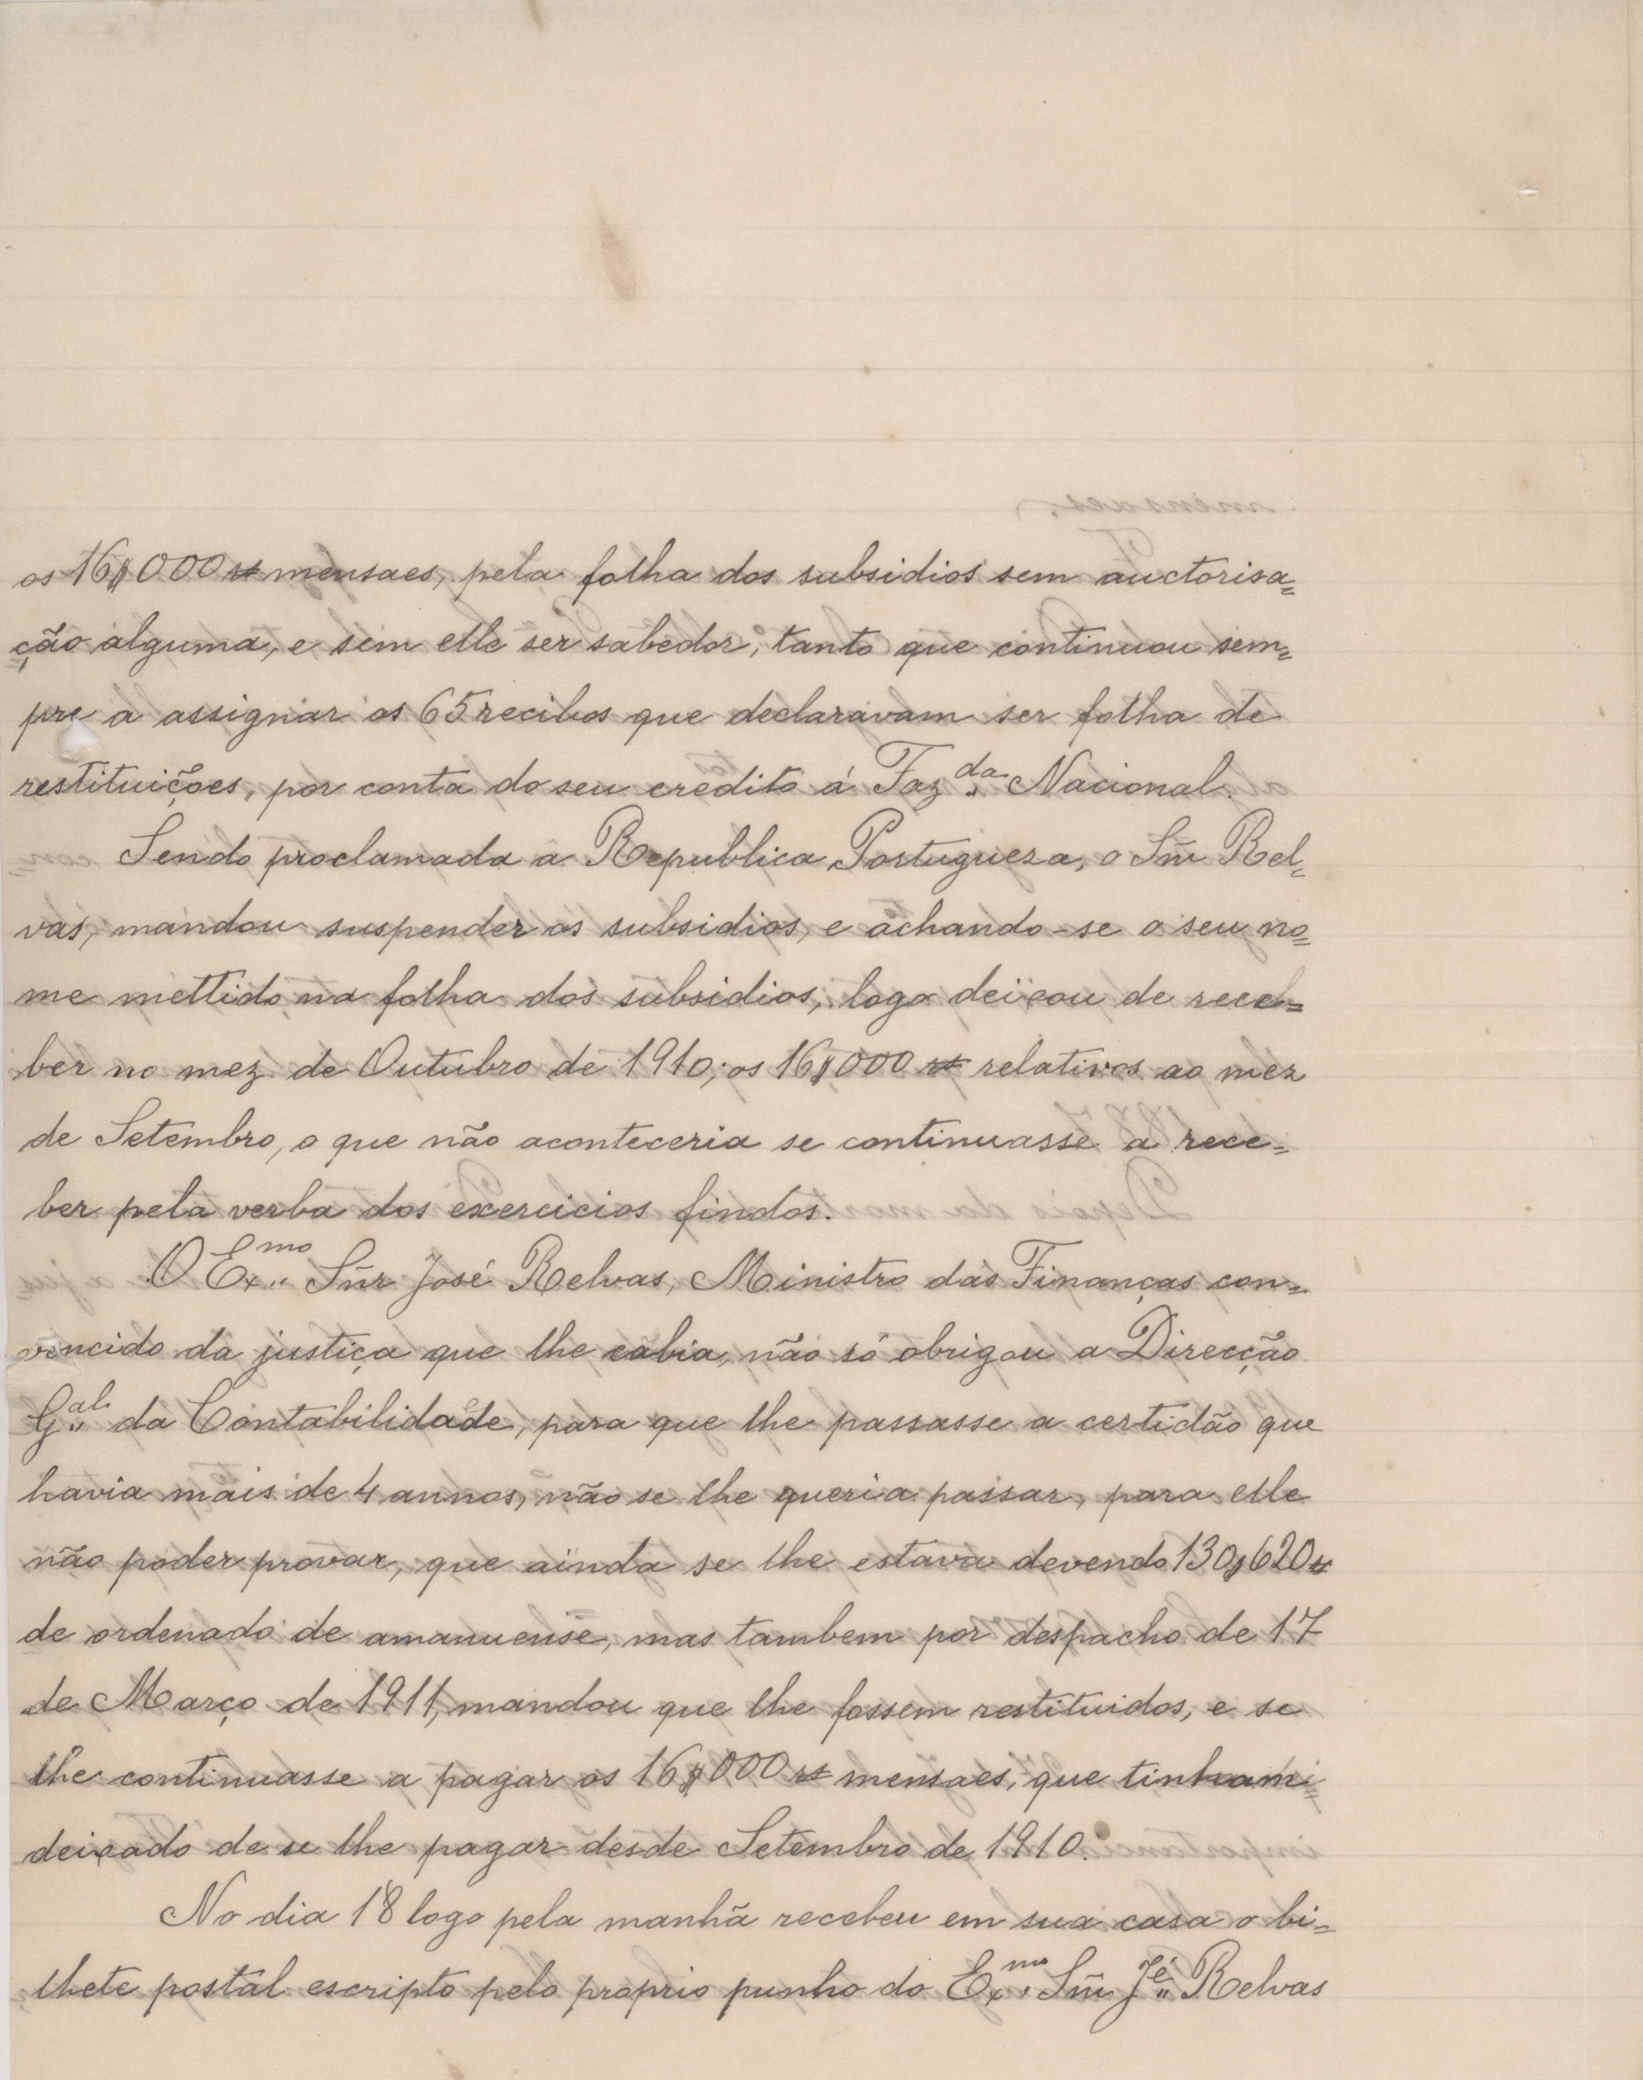 os 16$000 rs mensaes, pela folha dos subsidios sem auctorisa=
ção alguma, e sem elle ser sabedor, tanto que continuou sem=
pre a assignar os 65 recibos que declaravam ser folha de
restituições, por conta do seu credito á Faz.da Nacional.
Sendo proclamada a Republica Portugueza, o Snr Rel=
vas, mandou suspender os subsidios, e achando-se o seu no=
me mettido na folha dos subsidios, logo deixou de rece=
ber no mez de Outubro de 1910, os 16$000 rs relativos ao mez
de Setembro, o que não aconteceria se continuasse a rece=
ber pela verba dos exercicios findos.
O Ex.mo Snr José Relvas, Ministro das Finanças con=
vencido da justiça que lhe cabia, não só obrigou a Direcção
G.al da Contabilidade, para que lhe passasse a certidão que
havia mais de 4 annos, não se lhe queria passar, para elle
não poder provar, que ainda se lhe estava devendo 130$620 rs
de ordenado de amanuense, mas tambem por despacho de 17
de Março de 1911, mandou que lhe fossem restituidos, e se
lhe continuasse a pagar os 16$000 rs mensaes, que tinham
deixado de se lhe pagar desde Setembro de 1910.
No dia 18 logo pela manhã recebeu em sua casa o bi=
lhete postal escripto pelo proprio punho do Ex.mo Snr J.é Relvas